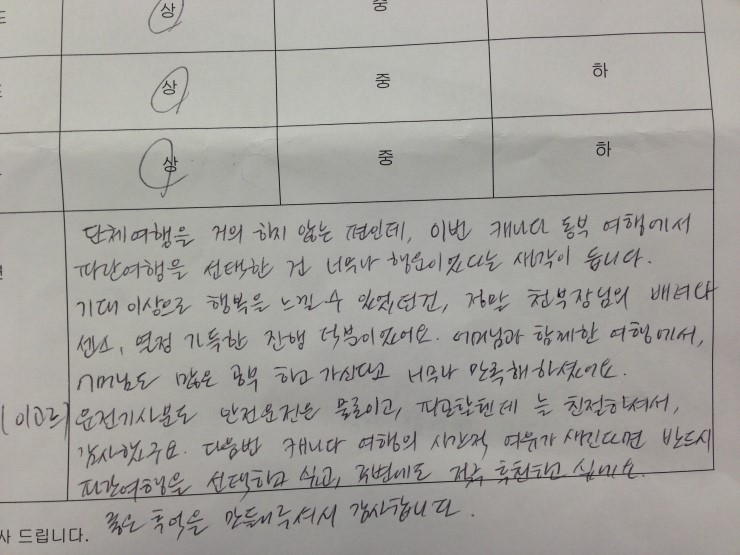 상 중
상 중 하
상 중 하
단체여행을 거의 하지 않는 편인데, 이번 캐나다 동부 여행에서
파란여행을 선택한 건 너무나 행운이었다는 생각이 듭니다.
기대 이상으로 행복을 느낄 수 있었던건, 정말 천부장님의 배려와
센스, 열정 가득한 진행 덕분이었어요. 어머님과 함께한 여행에서,
어머님도 많은 공부 하고 가신다고 너무나 만족해하셨어요.
운전기사분도 안전운전은 물론이고, 친절하셔서,
감사했구요. 다음번 캐나다 여행의 시간적 여유가 생긴다면 반드시
파란여행을 선택하고 싶고, 주변에도 적극 추천하고 싶네요.
사 드립니다. 좋은 추억을 만들어주셔서 감사합니다.